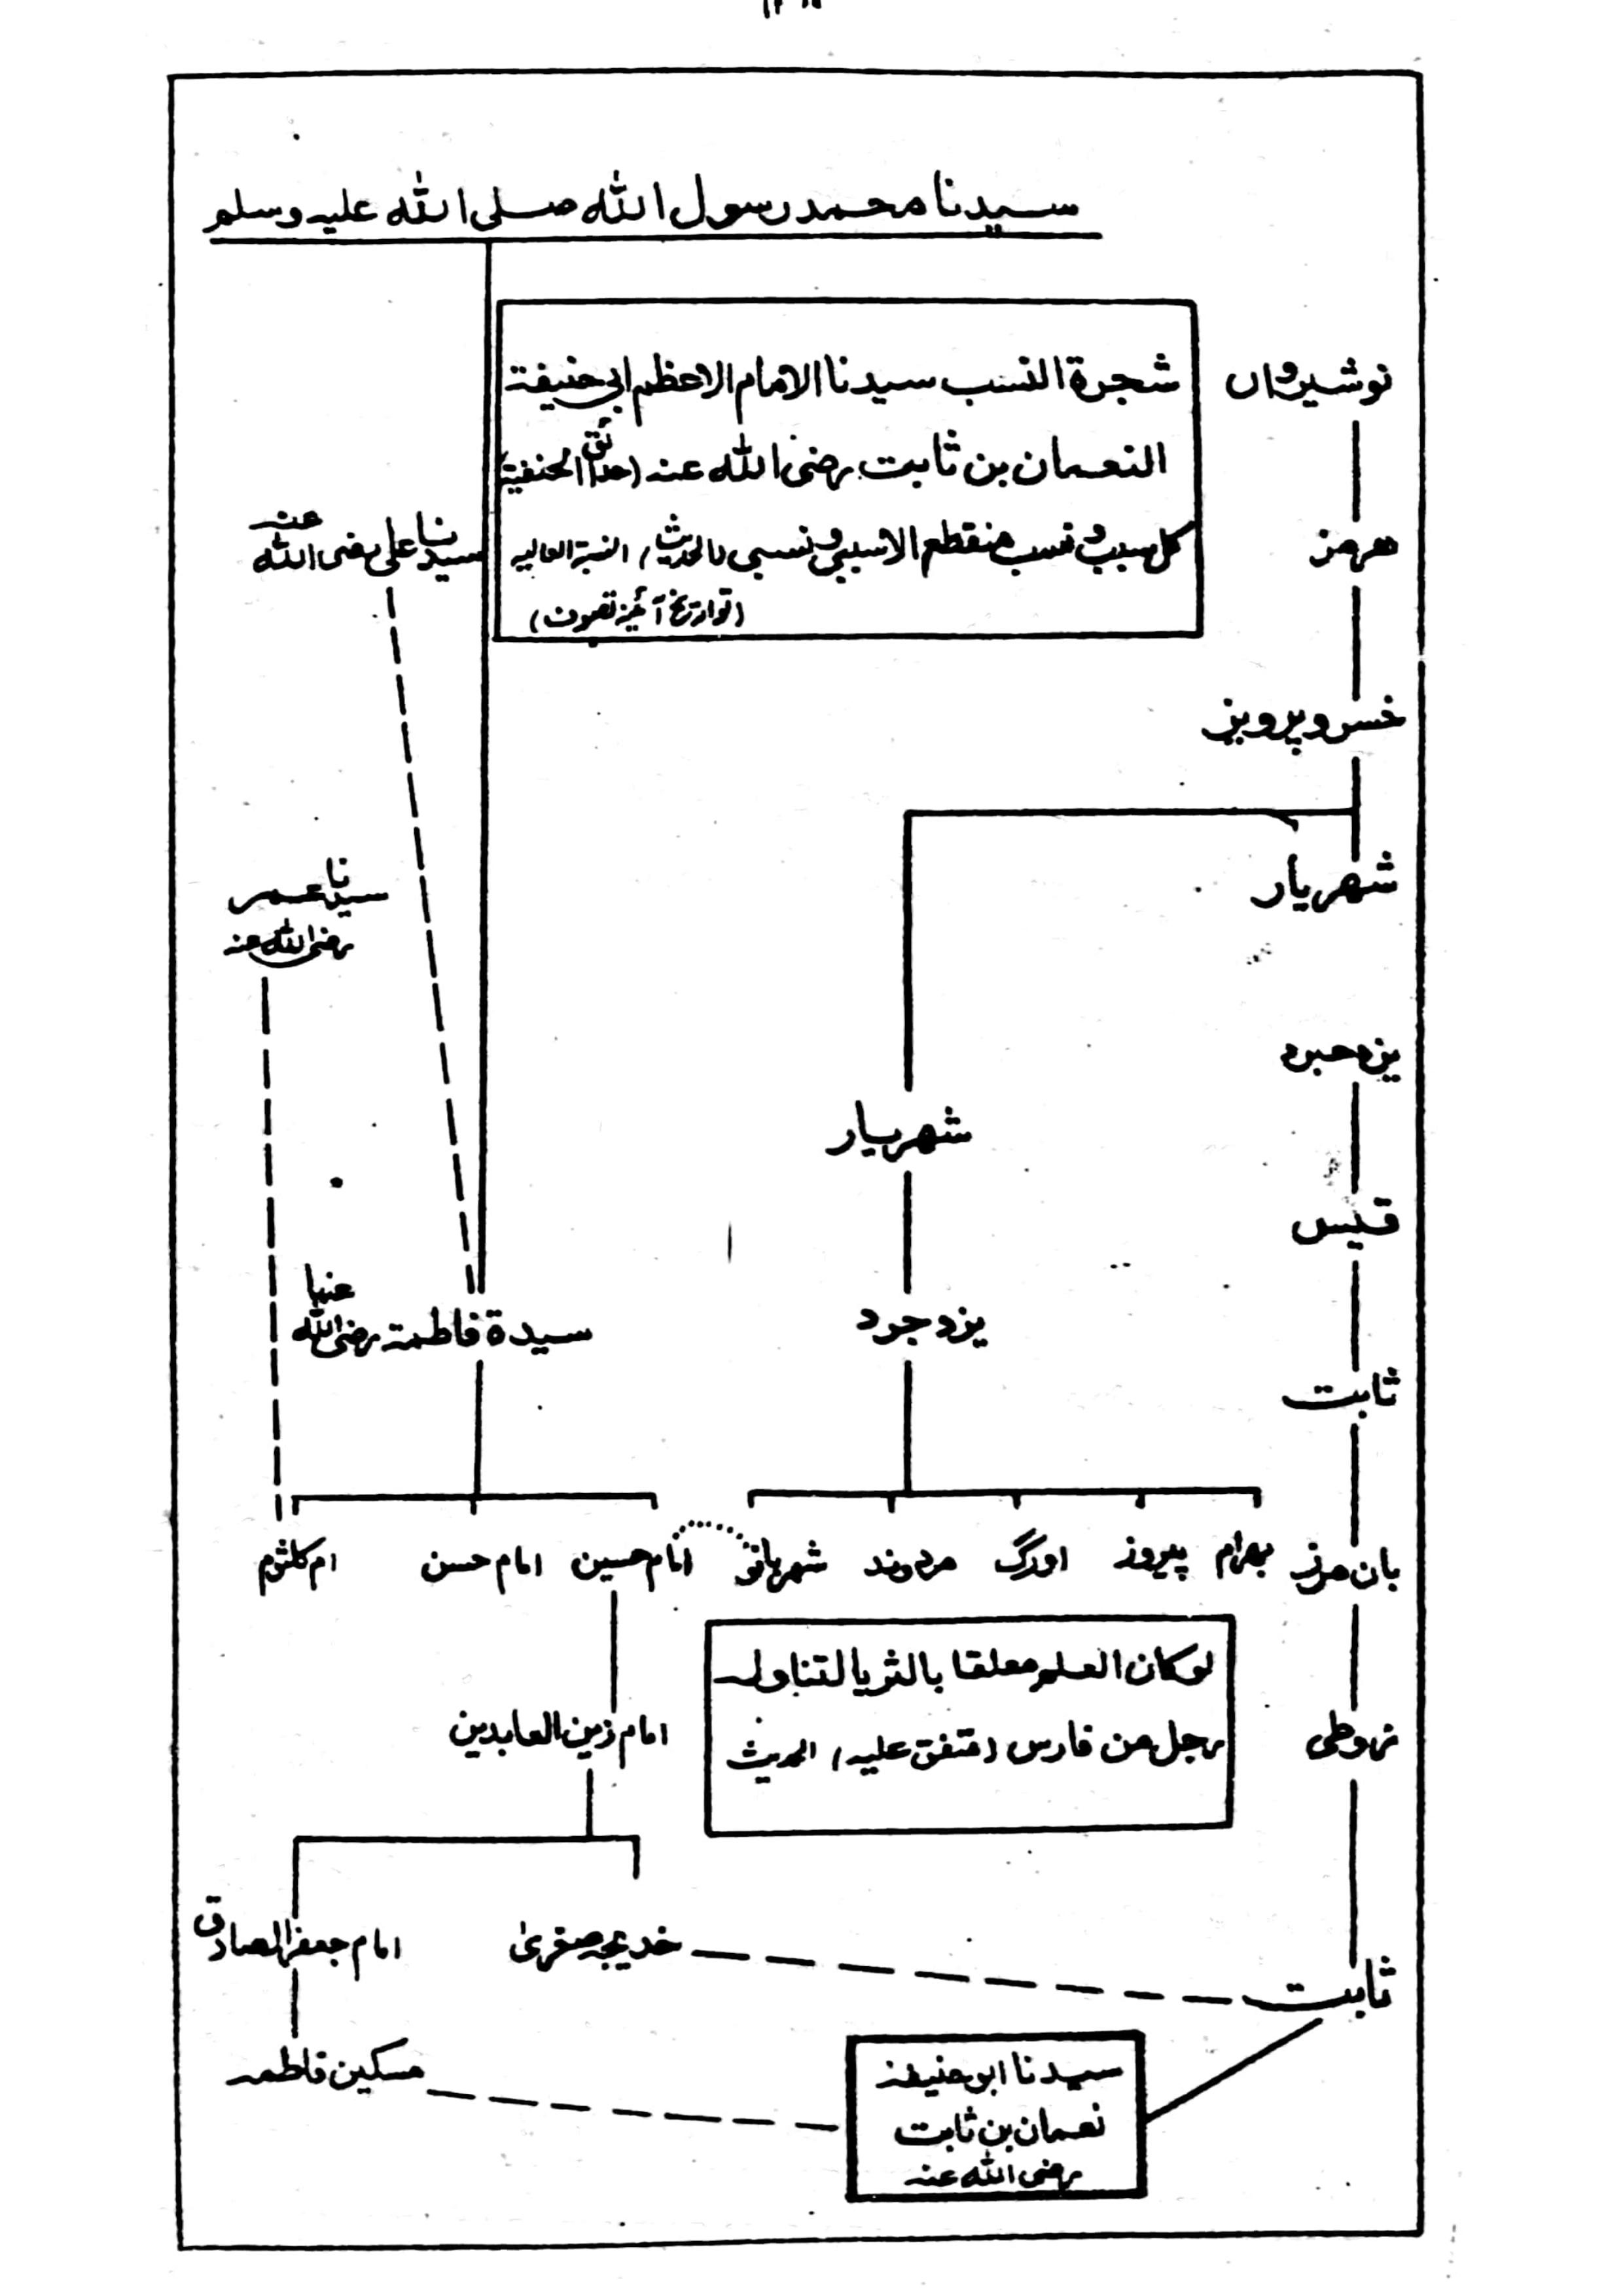 سيدنا محمد رسول الله صلى الله عليه وسلم
شجرة النسب سيدنا الامام الاعظم ابي حنيفة
النعمان بن ثابت رضى الله عنه (حدائق الحنفية)
كل سبب و نسب منقطع الا سببي و نسبي (الحديث) النسبة العالية
(تواریخ آئینہ تصوف)
نوشیرواں
هرمز
خسرو پرویز
شهریار
یزد جرد
قیس
ثابت
بان هرمز
زوطی
ثابت
سيدنا علی رضى الله عنه
سيدنا عمر
رضى الله عنه
شهریار
یزد جرد
سيدة فاطمة رضى الله عنها
بهرام
پیروز
اورگ
مردوند
شهربانو
امام حسین
امام حسن
ام کلثوم
لو كان العلم معلقا بالثريا لتناوله
رجل من فارس (متفق عليه) الحديث
امام زین العابدین
خدیجہ صغریٰ
امام جعفر الصادق
مسکین فاطمہ
سیدنا ابو حنیفہ
نعمان بن ثابت
رضى الله عنه